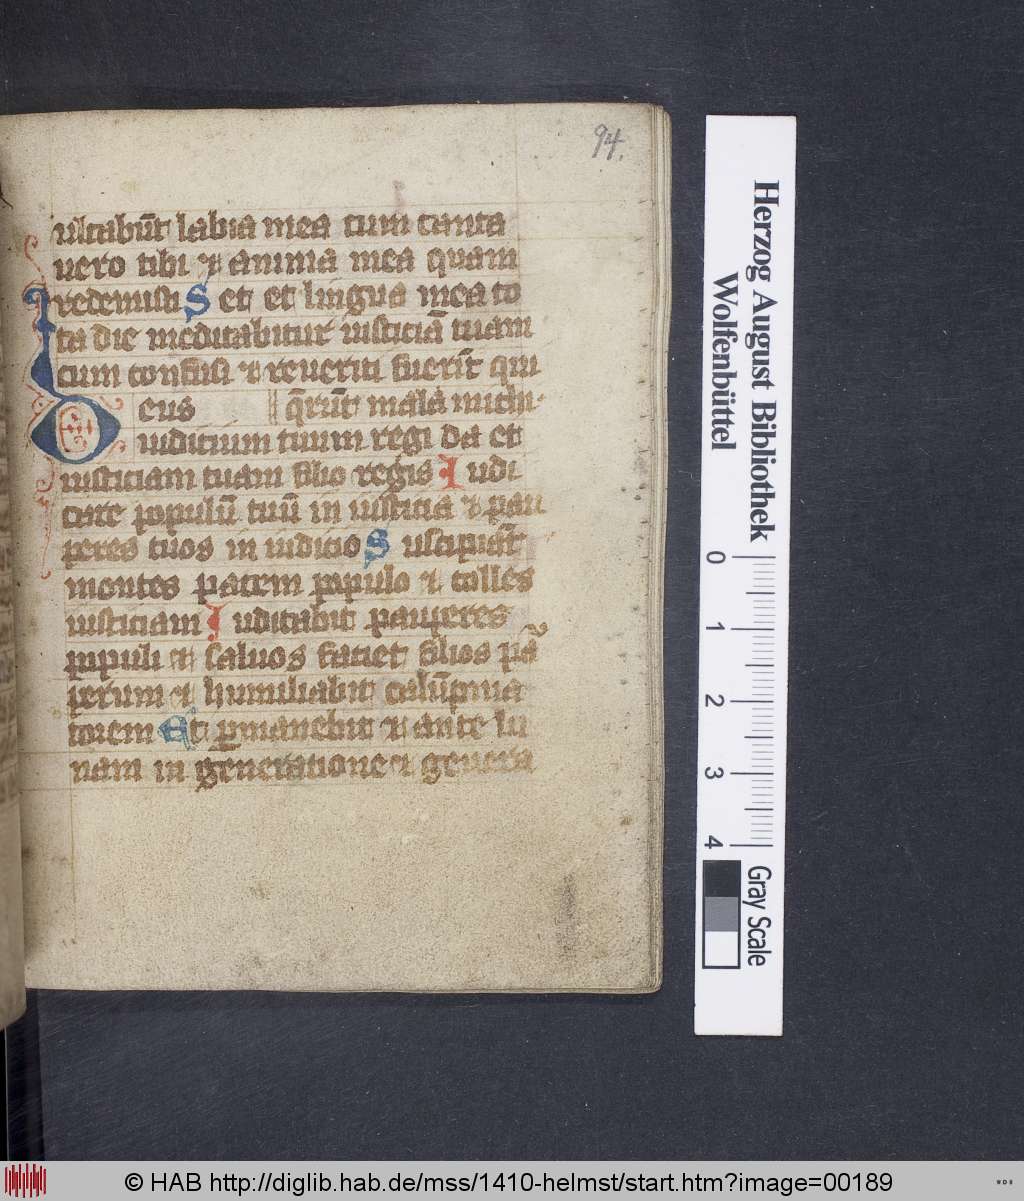 94.
ultabūt labia mea cum canta
vero tibi ⁊ anima mea quam
redemisti S et et lingua mea to
ta die meditabitur iusticiā tuam
cum confusi ⁊ reueriti fuerīt qui
Deus q̄rūt mala michi
iudicium tuum regi da et
iusticiam tuam filio regis I udi
care populū tuū in iusticia ⁊ pau
peres tuos in iudicio S uscipiāt
montes pacem populo ⁊ colles
iusticiam I udicabit pauperes
populi ⁊ saluos faciet filios pa
perum ⁊ humiliabit calūpnia
torem Et pmanebit ⁊ ante lu
nam in generatione ⁊ genera
Herzog August Bibliothek
Wolfenbüttel
0 1 2 3 4
Gray Scale
© HAB http://diglib.hab.de/mss/1410-helmst/start.htm?image=00189